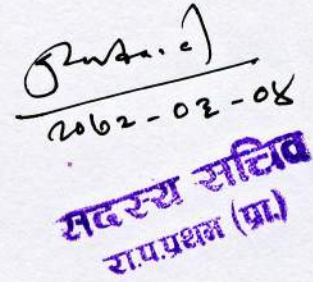 2062-02-08
सदस्य सचिव
रा.प.प्रथम (प्रा.)